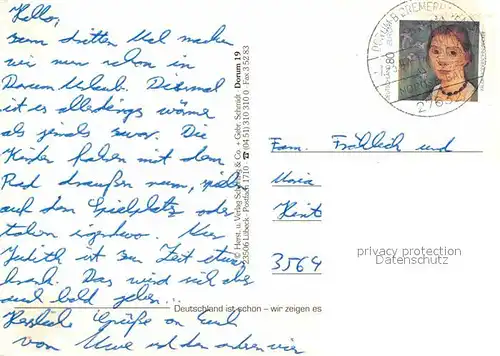 Hallo,
zum dritten Mal machen
wir nun schon in
Dorum Urlaub. Diesmal
ist es allerdings wärmer
als jemals zuvor. Die
Kinder fahren mit dem
Rad draußen rum, spielen
auf dem Spielplatz oder
toben irgendwo. Nur
Judith ist zur Zeit etwas
krank. Das wird sich aber
auch bald geben...
Herzliche Grüße an Euch
von Uwe und den anderen vier
© Herst. u. Verlag Schöning & Co. + Gebr. Schmidt · Dorum 19
23506 Lübeck · Postfach 1710 · ☎ (0451) 310 310 · Fax 3 52 83
Deutschland ist schön – wir zeigen es
80
Fam. Fröhlich und
3564
privacy protection
Datenschutz